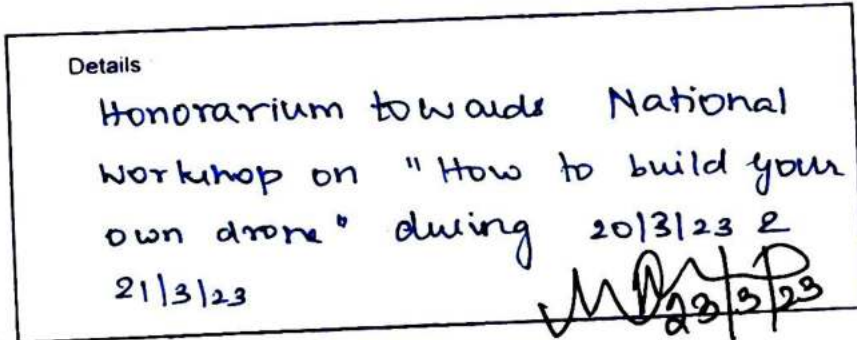 Details
Honorarium towards National
Workshop on "How to build your
own drone" during 20/3/23 &
21/3/23
23/3/23